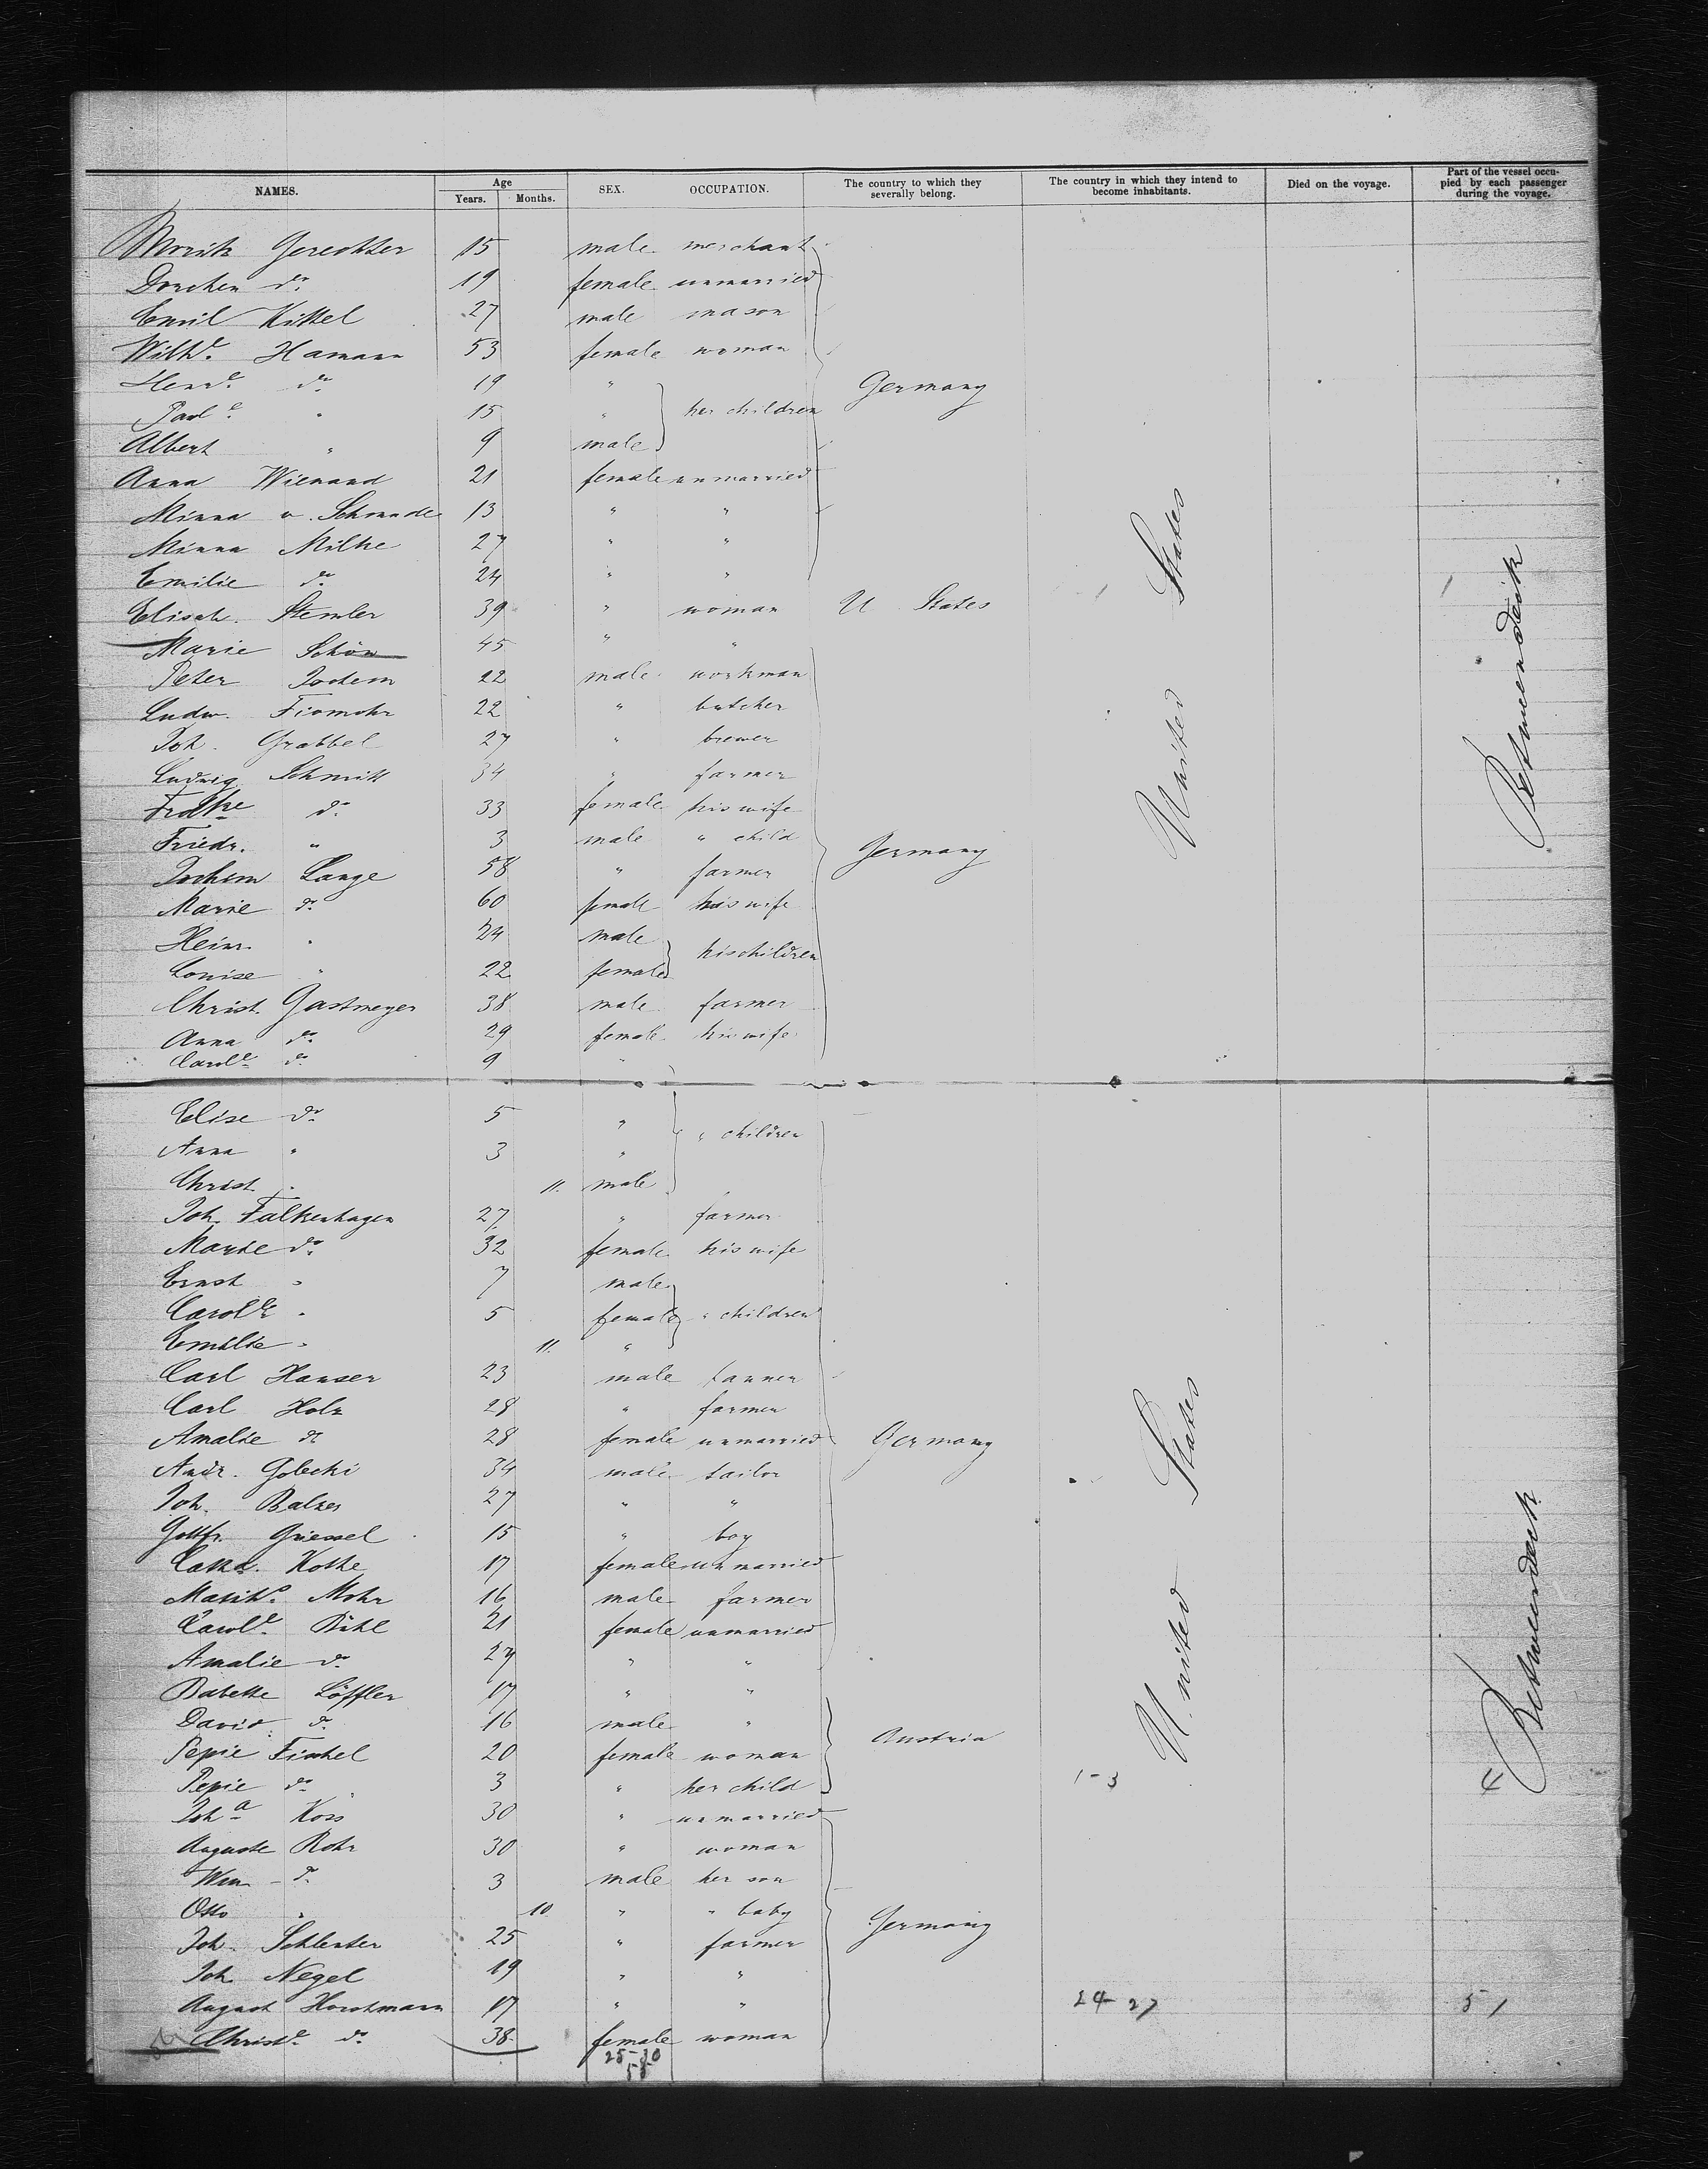 NAMES. Age Years. Months. SEX. OCCUPATION. The country to which they severally belong. The country in which they intend to become inhabitants. Died on the voyage. Part of the vessel occupied by each passenger during the voyage.
Moritz Gerechter 15 male merchant
Dorchen do 19 female unmarried
Emil Kittel 27 male mason
Wilhe. Hamann 53 female woman
Henre. do 19 "
Paule " 15 " her children Germany
Albert " 9 male
Anna Wienand 21 female unmarried
Minna v. Schmude 13 " "
Minna Milke 27 " "
Emilie do 24 " "
Elisab. Stemler 39 " woman U States
Marie Schön 45 " "
Peter Jochem 22 male workman
Ludw. Fiomohr 22 " butcher
Joh. Grabbel 27 " brewer
Ludwig Schmitt 34 " farmer
do 33 female his wife
Friedr. " 3 male " child
Jochem Lange 58 " farmer Germany
Marie do 60 female his wife
Heinr. " 24 male
Louise " 22 female his children
Christ. Gastmeyer 38 male farmer
Anna do 29 female his wife
Carole do 9 "
United States
Betweendeck
Elise do 5 "
Anna " 3 " " children
Christ. " 11. male
Joh. Falkenhagen 27 " farmer
Marie do 32 female his wife
Ernst " 7 male
Carole " 5 female " children
Emilie " 11. "
Carl Hanser 23 male tanner
Carl Holz 28 " farmer
Amalie do 28 female unmarried Germany
Andr. Golecki 34 male tailor
Joh. Balzer 27 " "
Gottfr. Griessel 15 " boy
Catha. Kothe 17 female unmarried
Mohr 16 male farmer
Carole. Bühl 21 female unmarried
Amalie do 27 " "
Babette Löffler 17 " "
David do 16 male "
Pepie Fischel 20 female woman Austria
Pepie do 3 " her child 1-3 4
Joha Koss 30 " unmarried
Auguste Rohr 30 " woman
Wm do 3 male her son
Otto " 10 " " baby
Joh. Schlenter 25 " farmer Germany
Joh. Negel 19 " "
August Horstmann 17 " " 24-27 51
Christe. do 38 female woman
25-30
55
United States
Betweendeck